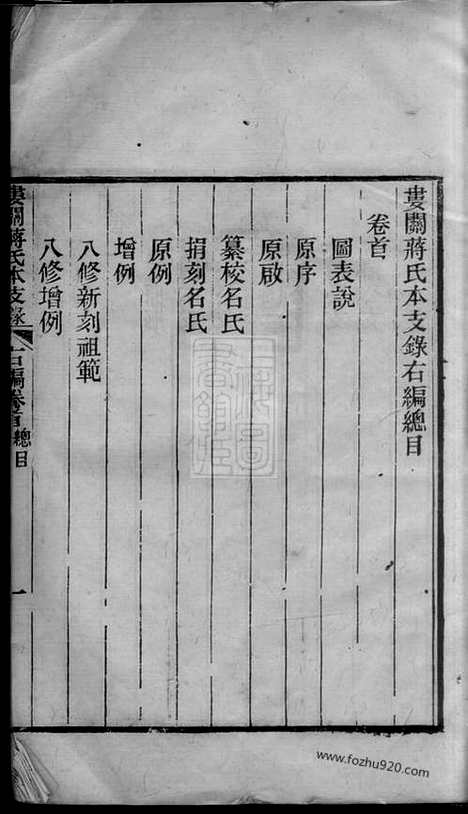 婁關蔣氏本支錄右編總目
卷首
圖表說
原序
原啟
纂校名氏
捐刻名氏
原例
增例
八修新刻祖範
八修增例
婁關蔣氏本支錄
右編卷首總目
一
www.fozhu920.com